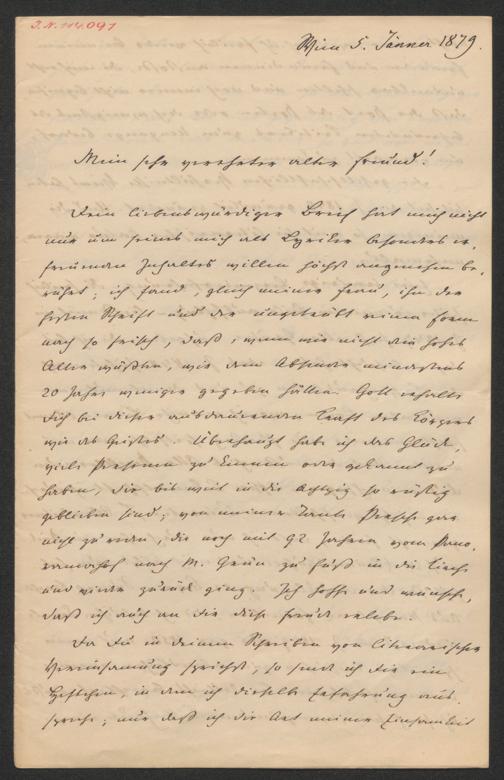 I.N. 114.091
Wien 5. Jänner 1879.
Mein sehr verehrter alter Freund!
Dein liebenswürdiger Brief hat mich nicht
nur um seines mich als Lyriker besonders er-
freuenden Inhaltes willen höchst angenehm be-
rührt; ich fand, gleich meiner Frau, ihn der
festen Schrift und der ungetrübt reinen Form
nach so frisch, daß, wenn wir nicht dein hohes
Alter wüßten, wir dem Absender mindestens
20 Jahre weniger gegeben hätten. Gott erhalte
Dich bei dieser ausdauernden Kraft des Körpers
wie des Geistes. Überhaupt habe ich das Glück,
viele Personen zu kennen oder gekannt zu
haben, die bis weit in die Achtzig so rüstig
geblieben sind; von meiner Tante gar
nicht zu reden, die noch mit 92 Jahren vom
nach M. Grün zu Fuß in die Kirche
und wieder zurück ging. Ich hoffe und wünsche,
daß ich auch an Dir diese Freude erlebe.
Da Du in deinem Schreiben von literarischer
Vereinsamung sprichst, so sende ich Dir ein
Heftchen, in dem ich dieselbe Erfahrung aus-
spreche; nur daß ich die Art meiner Einsamkeit